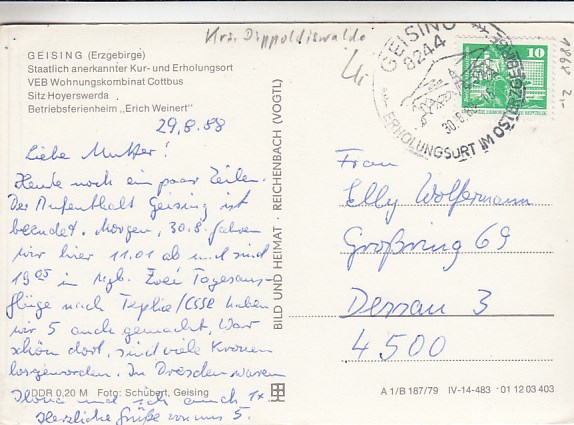 Krs. Dippoldiswalde
GEISING (Erzgebirge)
Staatlich anerkannter Kur- und Erholungsort
VEB Wohnungskombinat Cottbus
Sitz Hoyerswerda
Betriebsferienheim „Erich Weinert"
29.8.88
Liebe Mutter!
Heute noch ein paar Zeilen.
Der Aufenthalt Geising ist
beendet. Morgen, 30.8. fahren
wir hier 11.01 ab und sind
19 05 in Mgb. Zwei Tagesaus-
flüge nach Teplice/CSSR haben
wir 5 auch gemacht. War
schön dort, sind viele Kronen
losgeworden. In Dresden waren
Ilona und ich auch 1x.
Herzliche Grüße von uns 5.
DDR 0,20 M Foto: Schubert, Geising
BILD UND HEIMAT · REICHENBACH (VOGTL)
GEISING
8244
30.8.88
ERHOLUNGSORT IM OSTERZGEBIRGE
10
Frau
Elly Wolfermann
Großring 69
Dessau 3
4500
A 1/B 187/79 IV-14-483 01 12 03 403